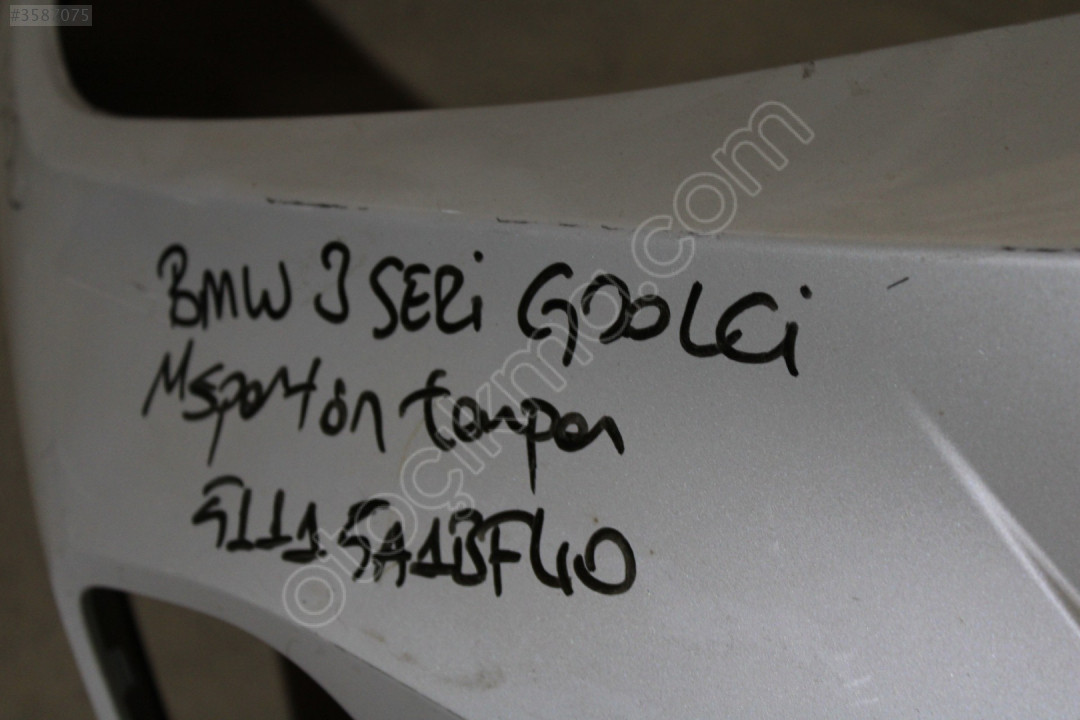 #3587075
BMW 3 SERi G20 LCi
M sport ön tampon
5111 5A1BF40
otocikmo.com